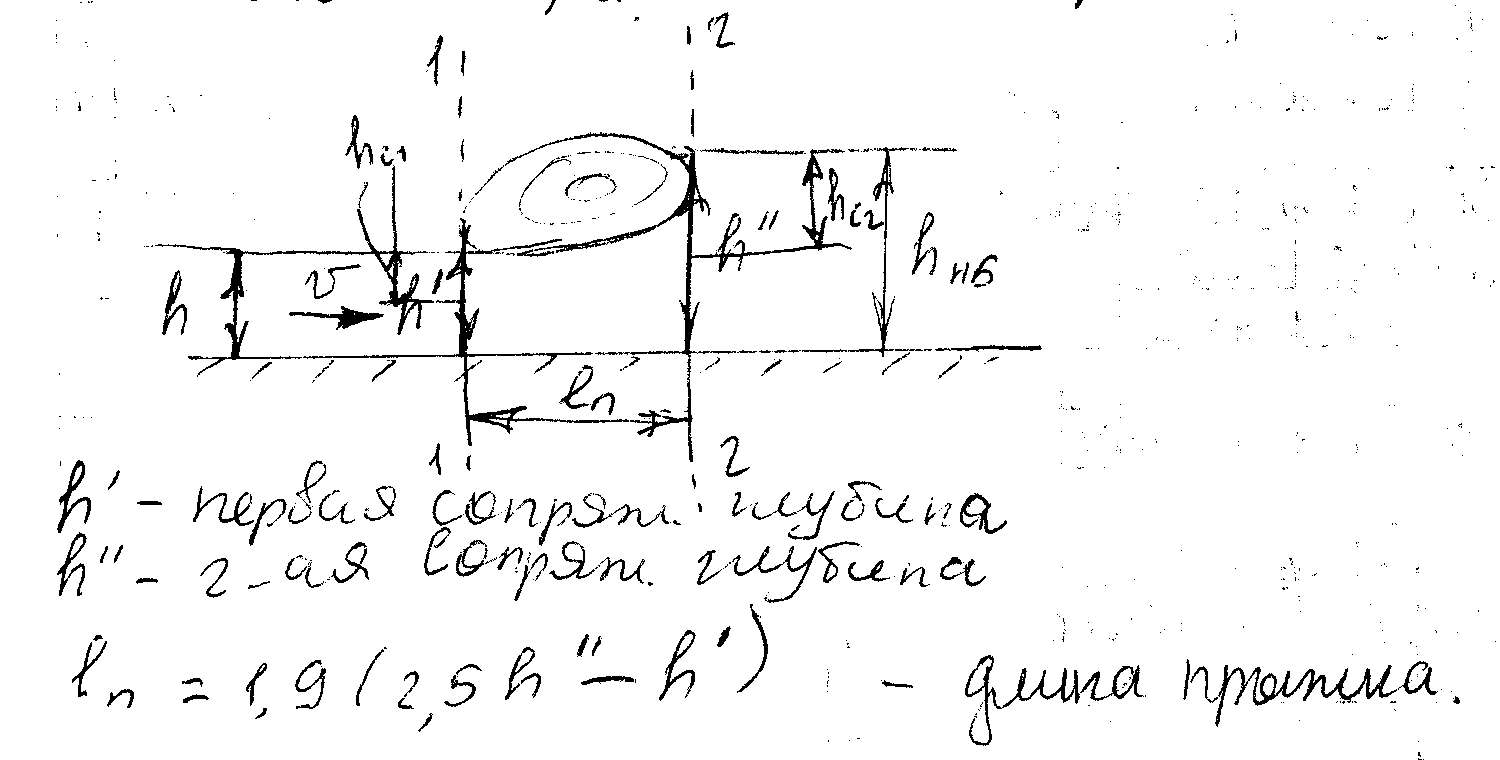 1 2
hс1
h v h' h" hс2 hнб
lп
1 2
h' – первая сопряж. глубина
h" – 2-ая сопряж. глубина
lп = 1,9 (2,5 h" – h') – длина прыжка.